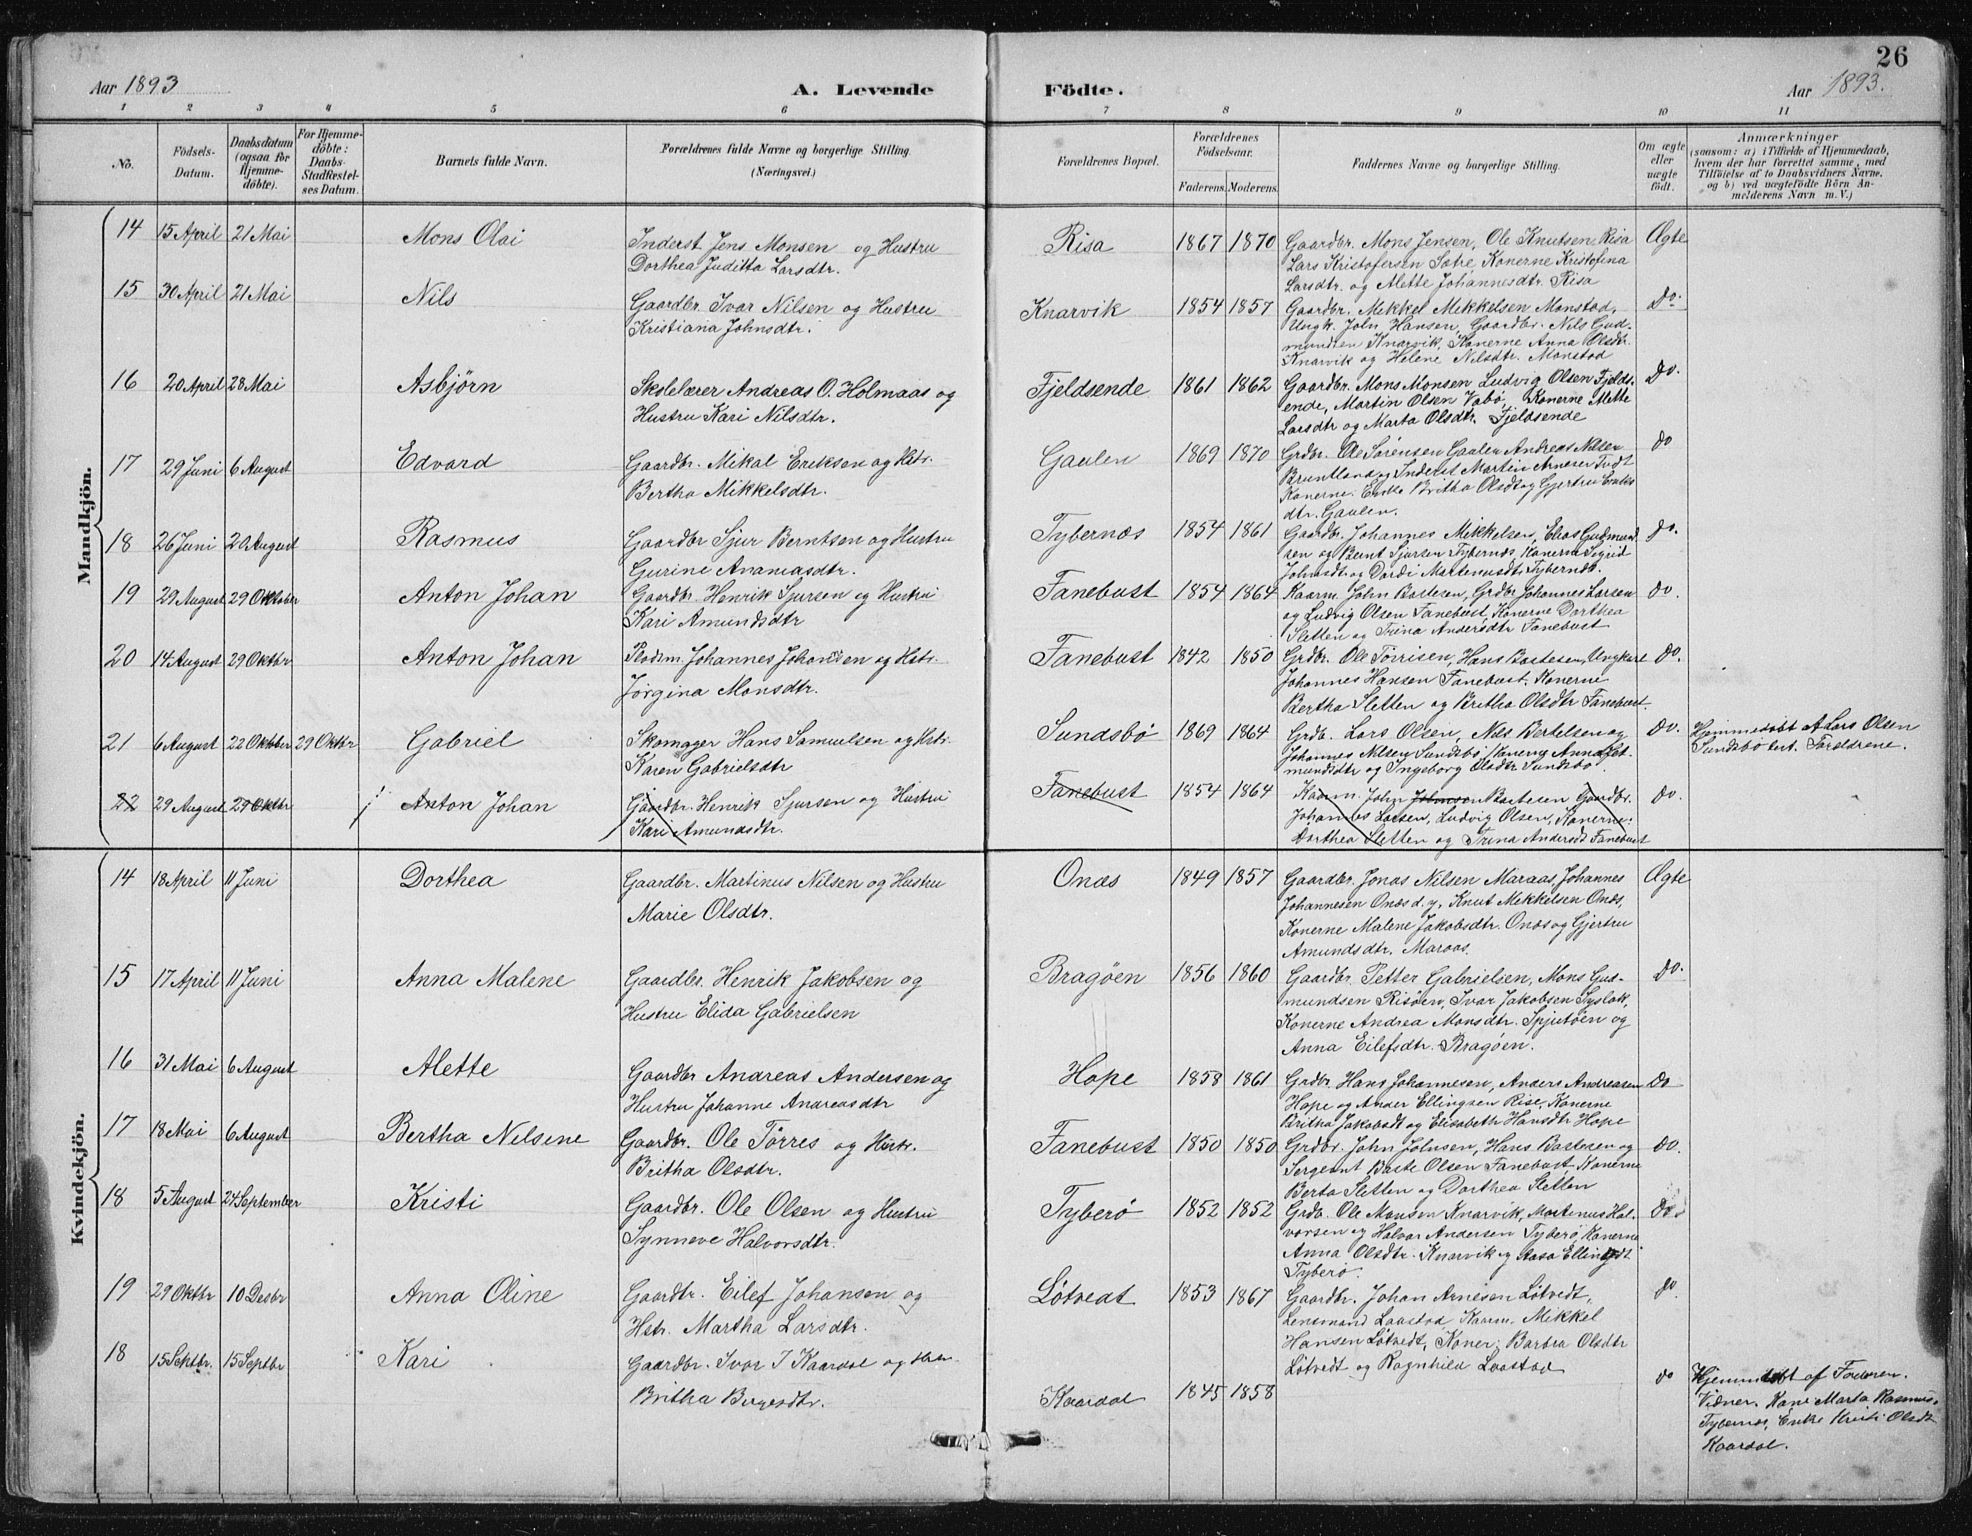 26
Aar 1893 A. Levende Födte. Aar 1893.
1 2 3 4 5 6 7 8 9 10 11
No. Födsels-Datum. Daabsdatum (ogsaa for Hjemme-döbte). For Hjemme-döbte: Daabs-Stadfæstel-ses Datum. Barnets fulde Navn. Forældrenes fulde Navne og borgerlige Stilling (Næringsvei.) Forældrenes Bopæl. Forældrenes Födselsaar. Faderens. Moderens. Faddernes Navne og borgerlige Stilling. Om ægte eller uægte födt. Anmærkninger
(saasom: a) i Tilfælde af Hjemmedaab,
hvem der har forrettet samme, med
Tilföielse af to Daabsvidners Navne.
og b) ved uægtefödte Börn An-
melderens Navn m.V.)
Mandkjön.
14 15 April 21 Mai Mons Olai Inderst Jens Monsen og Hustru Risa 1867 1870 Gaardbr. Mons Jensen, Ole Knutsen Risa Ægte
Dorthea Juditta Larsdtr. Lars Kristofersen Sætre, Konerne Kristofina
Larsdtr. og Alette Johannesdtr. Risa
15 30 April 21 Mai Nils Gaardbr Ivar Nilsen og Hustru Knarvik 1854 1857 Gaardbr. Mikkel Mikkelsen Monstad, Do.
Kristiana Johnsdtr. Ungk. John Hansen, Gaardbr. Nils Gud-
mundsen Knarvik, Konerne Anna Olsdtr.
Knarvik og Helene Nilsdtr. Monstad
16 20 April 28 Mai Asbjørn Skolelærer Andreas O. Holmaas og Fjeldsende 1861 1862 Gaardbr. Mons Monsen, Ludvig Olsen Fjelds- Do.
Hustru Kari Nilsdtr. ende, Martin Olsen Vabø, Konerne Mette
Larsdtr og Marta Olsdtr. Fjeldsende
17 29 Juni 6 August Edvard Gaardbr. Mikal Eriksen og Hstr. Gaulen 1869 1870 Grdbr. Ole Sørensen Gaulen Andreas Nilsen Do
Bertha Mikkelsdtr. Bruntland og Inderst Martin Arnesen
Konerne. Enke Britha Olsdt og Gjertru
dtr. Gaulen.
18 26 Juni 20 August Rasmus Gaardbr Sjur Berntsen og Hustru Tybernæs 1854 1861 Gaardbr. Johannes Mikkelsen, Elias Gudmund Do.
Gurine Ananiasdtr. sen og Bernt Sjursen Tybernæs, Konerne Sigrid
Johnsdt og Dordi Martenusdtr Tybernæs.
19 29 August 29 Oktober Anton Johan Gaardbr. Henrik Sjursen og Hustru Fanebust 1854 1864 Kaarm. John Bastesen, Grdbr Johannes Larsen Do.
Kari Amundsdtr og Ludvig Olsen Fanebust, Konerne Dorthea
Sletten og Trina Andersdtr Fanebust
20 14 August 29 Oktbr Anton Johan Pladsm. Johannes Johansen og Hstr. Fanebust 1842 1850 Grdbr. Ole Tørrisen, Hans Bastesen, Ungkarl Do.
Jørgina Monsdtr. Johannes Hansen Fanebust. Konerne
Bertha Sletten og Britha Olsdtr Fanebust
21 6 August 22 Oktober 29 Oktbr Gabriel Skomager Hans Samuelsen og Hstr. Sundsbø 1869 1864 Grdb. Lars Olsen, Nils Bertelsen og Do. Hjemmedøbt A Lars Olsen
Karen Gabrielsdtr Johannes Nilsen Sundsbø, Konerne Anna Sundsbø Forældrene.
mundsdtr og Ingeborg Olsdtr Sundsbø
22 29 August 29 Oktbr Anton Johan Gaardbr. Henrik Sjursen og Hustru Fanebust 1854 1864 Kaarm. John Johnsen Bastesen Gaardbr. Do.
Kari Amundsdtr. Johannes Larsen, Ludvig Olsen, Konerne:
Dorthea Sletten og Trina Andersdt Fanebust
Kvindekjön.
14 18 April 11 Juni Dorthea Gaardbr. Martinus Nilsen og Hustru Onæs 1849 1857 Gaardbr. Jonas Nilsen Maraas, Johannes Ægte
Marie Olsdtr. Johannesen Onæs d. y. Knut Mikkelsen Onæs,
Konerne Malene Jakobsdtr. Onæs og Gjertru
Amundsdtr. Maraas.
15 17 April 11 Juni Anna Malene Gaardbr. Henrik Jakobsen og Bragøen 1856 1860 Gaardbr. Petter Gabrielsen, Mons Gud- Do.
Hustru Elida Gabrielsen mundsen Risøen, Ivar Jakobsen Syslak,
Konerne Andrea Monsdtr. Spjutøen og
Anna Eilefsdtr. Bragøen.
16 31 Mai 6 August Alette Gaardbr Andreas Andersen og Hope 1858 1861 Grdbr Hans Johannesen, Anders Andreasen Do
Hustru Johanne Andreasdtr Hope og Ander Ellingsen Rise, Konerne
Britha Jakobsdt og Elisabeth Hansdtr Hope
17 18 Mai 6 August Bertha Nilsine Gaardbr. Ole Tørres og Hustr. Fanebust 1850 1850 Grdbr. John Johnsen, Hans Bastesen og Do.
Britha Olsdtr. Sergeant Baste Olsen Fanebust Konerne
Berta Sletten og Dorthea Sletten
18 5 August 24 September Kristi Gaardbr. Ole Olsen og Hustru Tyberø 1852 1852 Grdb. Ole Monsen Knarvik, Martenus Hal- Do
Synneve Halvorsdtr. vorsen og Halvor Andersen Tyberø, Konerne
Anna Olsdtr. Knarvik og Aasa Ellingsdt.
Tyberø.
19 29 Oktbr 10 Desbr Anna Oline Gaardbr. Eilef Johansen og Løtvedt 1853 1867 Gaardbr. Johan Arnesen Løtvedt, Do.
Hstr. Martha Larsdtr. Lensmand Laastad, Kaarm. Mikkel
Hansen Løtvedt, Koner: Barbra Olsdtr
Løtvedt og Ragnhild Laastad
18 15 Septbr. 15 Septbr Kari Gaardbr. Ivar I Kaardal og Kaardal 1845 1858 Do Hjemmedøbt af Faderen.
Britha Børgesdtr. Vidner. Kone Marta Rasmus-
Tybernæs, Enke Kristi Olsdt
Kaardal.